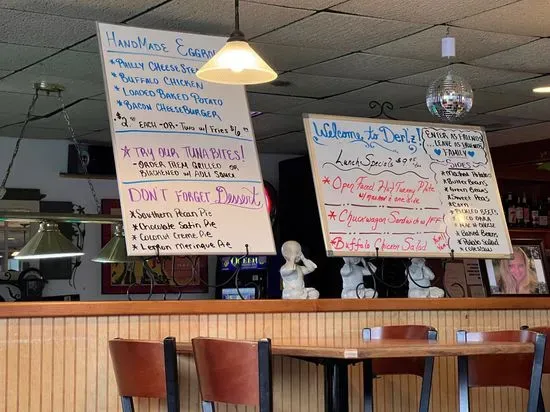 HandMade Eggro
* Philly Cheese Ste
* Buffalo Chicken
* Loaded Baked Potato
* Bacon Cheeseburger
Each -or- Two w/ Fries
* Try our Tuna Bites!
- Order them Grilled or
Blackened w/ Aoli Sauce
Don't Forget Dessert
* Southern Pecan Pie
* Chocolate Satin Pie
* Coconut Creme Pie
* Lemon Meringue Pie
Welcome to Der
Lunch Specials
* Open Faced Hot Turkey Plate
* Chuckwagon Sandwich w/FF
* Buffalo Chicken Salad
Enter as Friends
Leave as
Family
Sides
* Mashed Potatoes
* Butter Beans
* Green Beans
* Sweet Peas
* Corn
* Pickled Beets
* Mac n Cheese
* Baked Beans
* Potato Salad
* Coleslaw